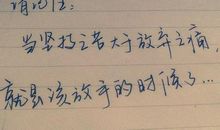 当坚持之苦大于放弃之痛，
就是该放手的时候了...